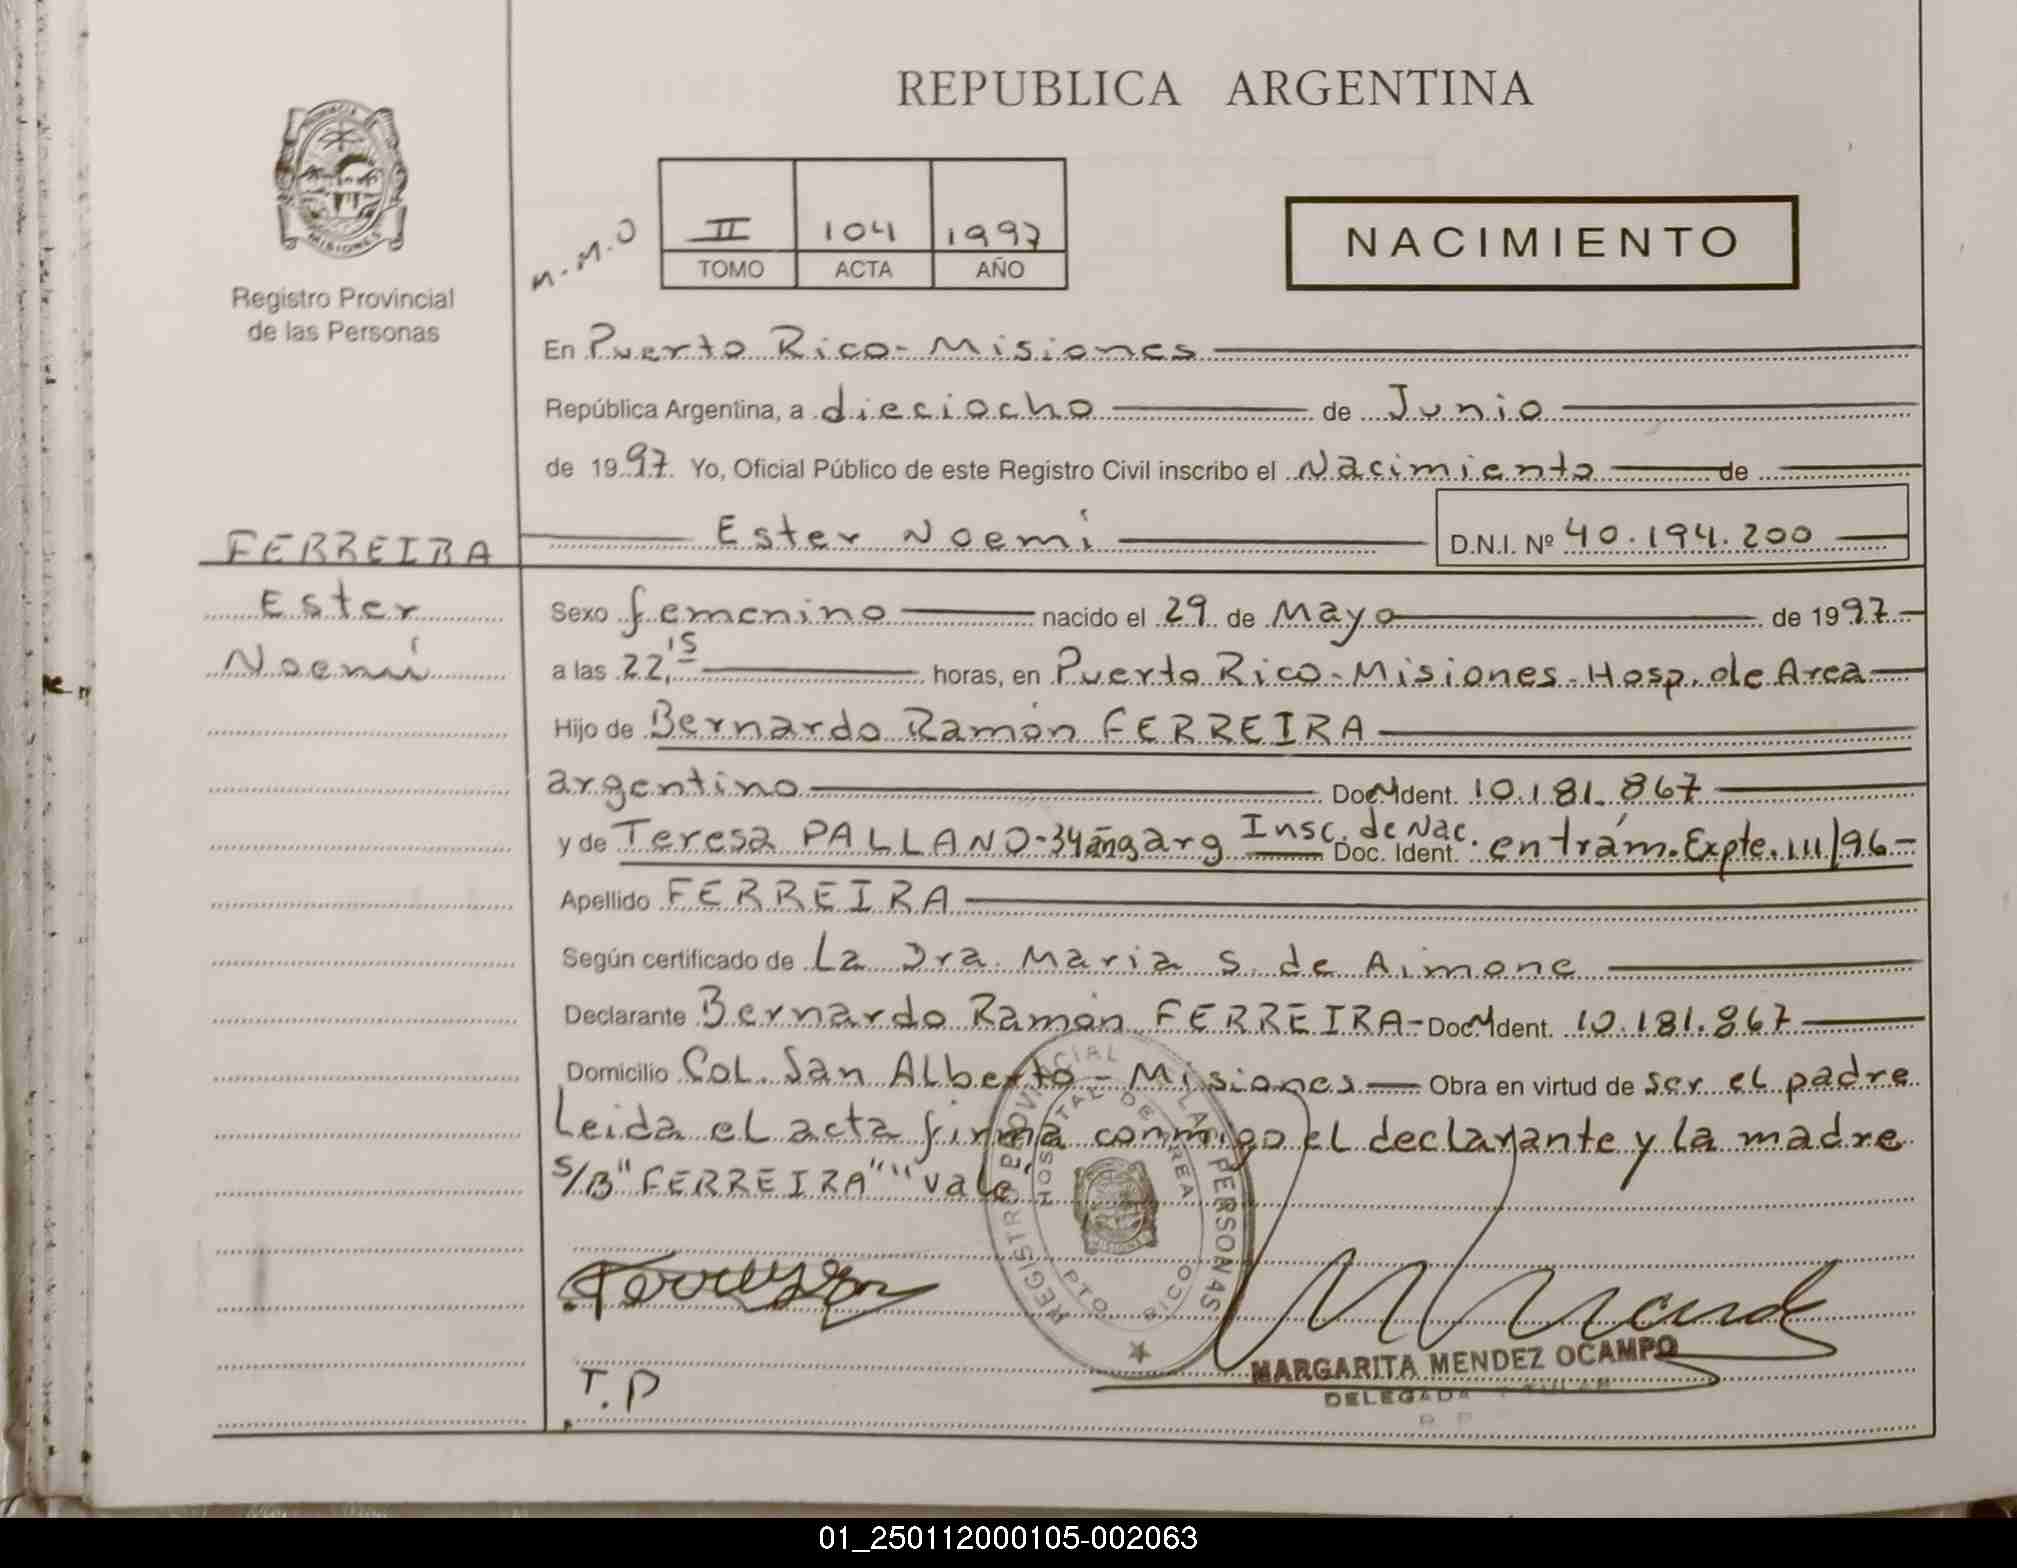 REPUBLICA ARGENTINA
PROVINCIA DE
MISIONES
Registro Provincial
de las Personas
M.M.O
II 104 1997
TOMO ACTA AÑO
NACIMIENTO
En Puerto Rico - Misiones
República Argentina, a dieciocho de Junio
de 1997. Yo, Oficial Público de este Registro Civil inscribo el Nacimiento de
FERREIRA
Ester Noemi
D.N.I. Nº 40.194.200
Ester
Noemí
Sexo femenino nacido el 29 de Mayo de 1997
a las 22,15 horas, en Puerto Rico - Misiones - Hosp. de Area
Hijo de Bernardo Ramón FERREIRA
argentino Doc M Ident. 10.181.867
y de Teresa PALLANO - 34 años arg Insc. de Nac. Doc. Ident. en trám. Expte. 111/96
Apellido FERREIRA
Según certificado de La Dra. Maria S. de Aimone
Declarante Bernardo Ramón FERREIRA - Doc M Ident. 10.181.867
Domicilio Col. San Alberto - Misiones Obra en virtud de ser el padre
Leida el acta firma conmigo el declarante y la madre
S/B "FERREIRA" "vale
REGISTRO PROVINCIAL LAS PERSONAS
HOSPITAL DE AREA
PTO RICO
MISIONES
T.P
MARGARITA MENDEZ OCAMPO
DELEGADA TITULAR
01_250112000105-002063